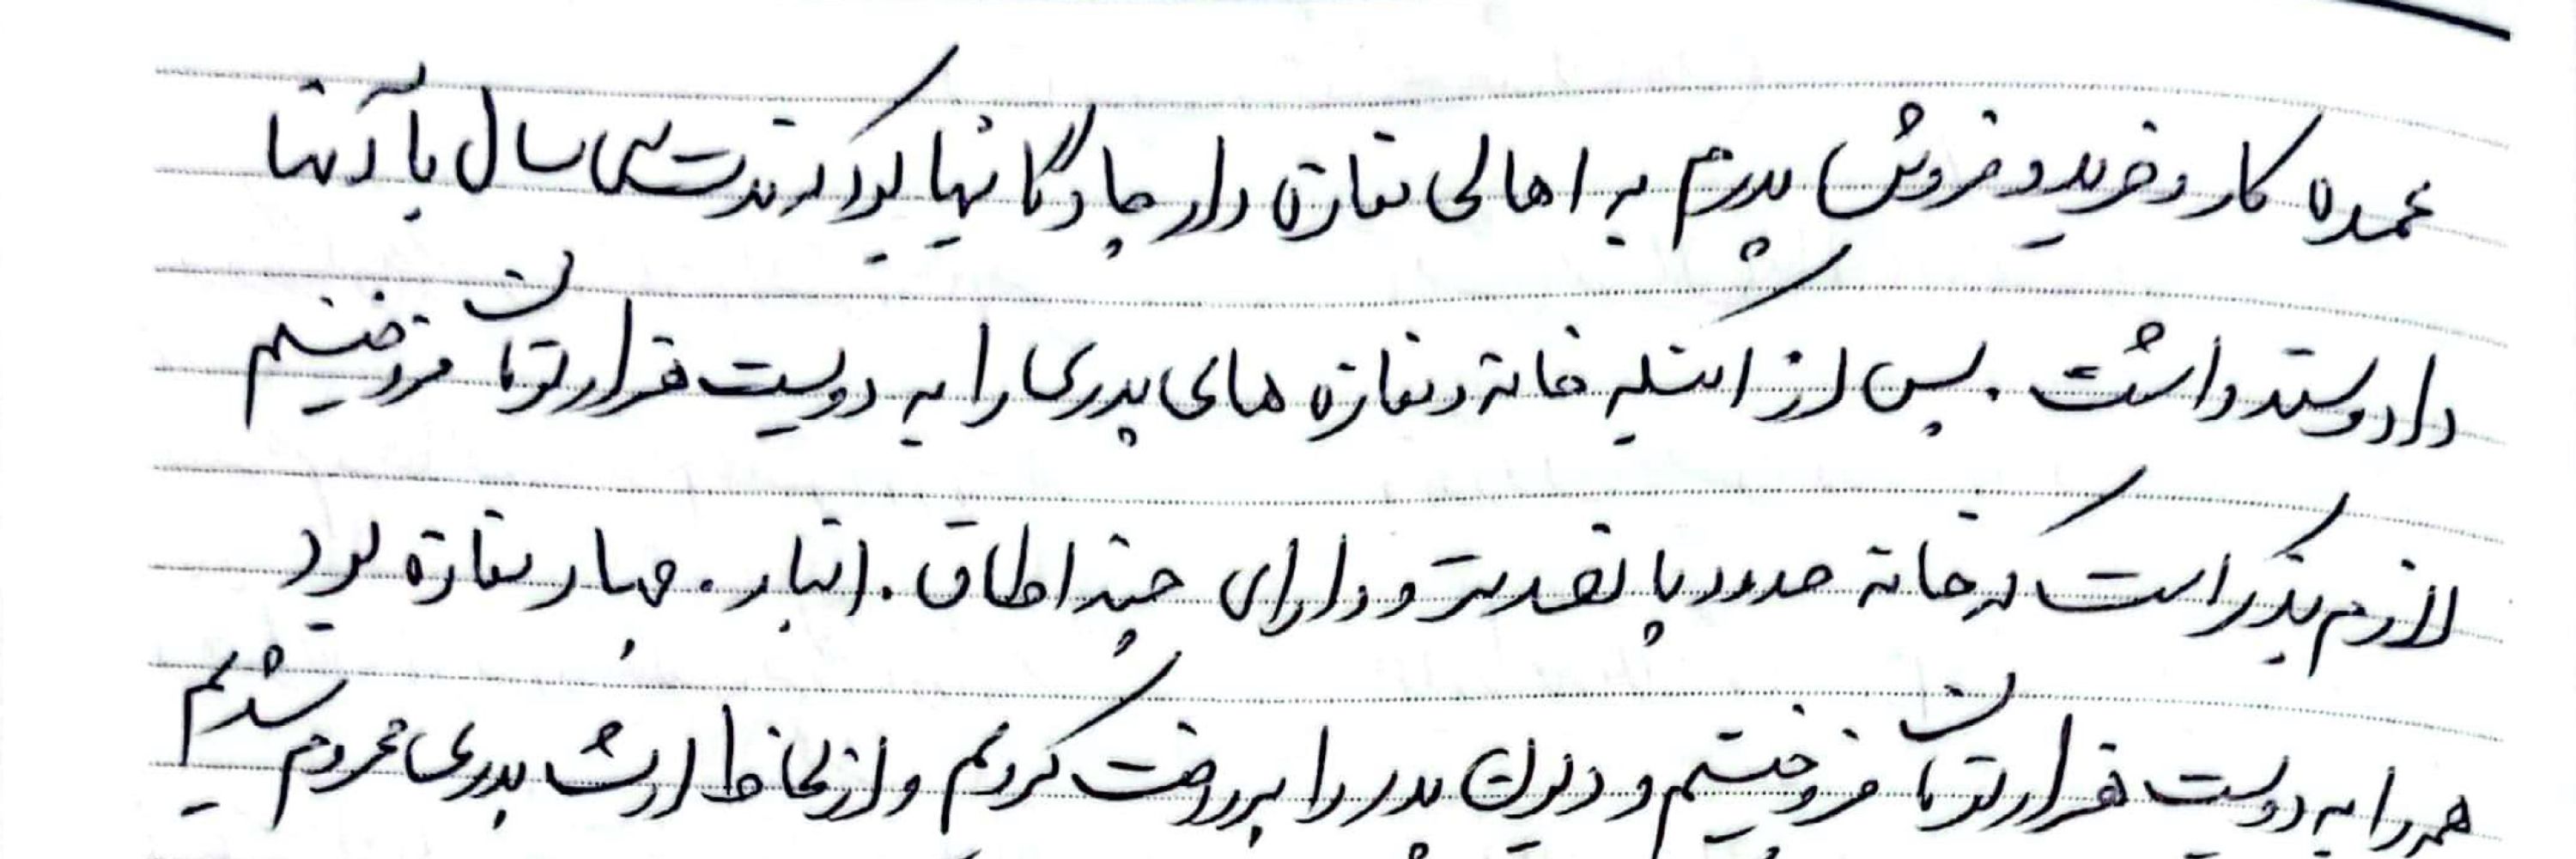 عمده کار و خرید و فروش پدرم به اهالی مغازه دار چادگانیها بود که مدت سی سال با آنها
داد و ستد داشت . پس از اینکه خانه و مغازه های پدری را به دویست هزار تومان فروختیم
لازم بذکر است که خانه حدود پانصد متر و دارای چند اطاق . انبار . چهار مغازه بود
همه را به دویست هزار تومان فروختیم و دیون پدر را پرداخت کردیم و از لحاظ ارث پدری محروم شدیم